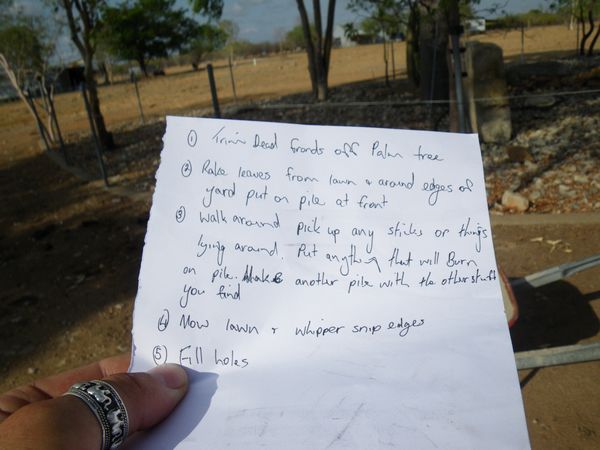 ① Trim Dead fronds off Palm tree
② Rake leaves from lawn & around edges of
yard put on pile at front
③ Walk around pick up any sticks or things
lying around. Put anything that will Burn
on pile. Make another pile with the other stuff
you find
④ Mow lawn & whipper snip edges
⑤ Fill holes